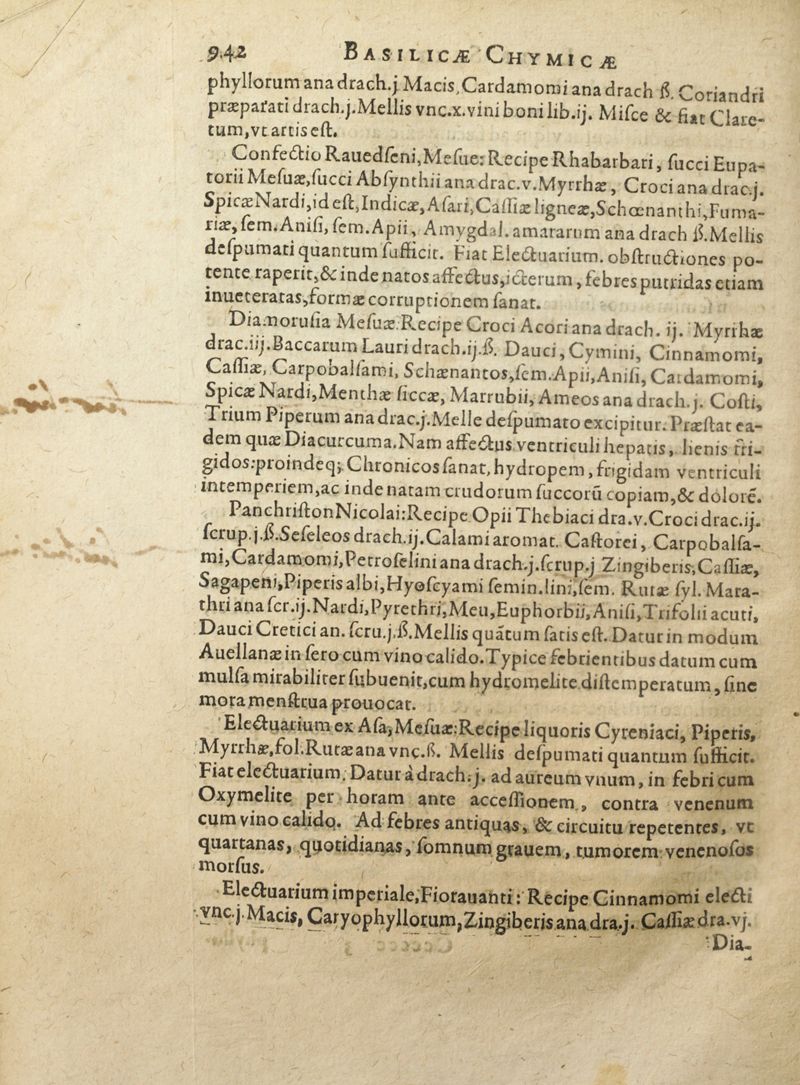 942 BASILICÆ CHYMICÆ
phyllorum ana drach.j Macis, Cardamomi ana drach ß. Coriandri
præparati drach.j. Mellis vnc.x. vini boni lib.ij. Misce & fiat Clare-
tum, vt artis est.
Confectio Rauedsceni, Mesue: Recipe Rhabarbari, succi Eupa-
torii Mesuæ, succi Absynthii ana drac.v. Myrrhæ, Croci ana drac.j.
Spicæ Nardi, id est, Indicæ, Asari, Cassiæ ligneæ, Schœnanthi, Fuma-
riæ, sem. Anisi, sem. Apii, Amygdal. amararum ana drach ß. Mellis
despumati quantum sufficit. Fiat Electuarium. obstructiones po-
tente raperit, & inde natos affectus, icterum, febres putridas etiam
inueteratas, formæ corruptionem sanat.
Diamorusia Mesuæ: Recipe Croci Acori ana drach. ij. Myrrhæ
drac.iij. Baccarum Lauri drach.ij.ß. Dauci, Cymini, Cinnamomi,
Cassiæ, Carpobalsami, Schænantos, sem. Apii, Anisi, Cardamomi,
Spicæ Nardi, Menthæ siccæ, Marrubii, Ameos ana drach.j. Costi,
Trium Piperum ana drac.j. Melle despumato excipitur. Præstat ea-
dem quæ Diacurcuma. Nam affectus ventriculi hepatis, lienis fri-
gidos: proindeq; Chronicos sanat, hydropem, frigidam ventriculi
intemperiem, ac inde natam crudorum succorū copiam, & dolorē.
Panchriston Nicolai: Recipe Opii Thebiaci dra.v. Croci drac.ij.
scrup.j.ß. Seseleos drach.ij. Calami aromat. Castorei, Carpobalsa-
mi, Cardamomi, Petroselini ana drach.j. scrup.j Zingiberis, Cassiæ,
Sagapeni, Piperis albi, Hyoscyami semin. lini, sem. Rutæ syl. Mara-
thri ana scr.ij. Nardi, Pyrethri, Meu, Euphorbii, Anisi, Trifolii acuti,
Dauci Cretici an. scru.j.ß. Mellis quātum satis est. Datur in modum
Auellanæ in sero cum vino calido. Typice febrientibus datum cum
mulsa mirabiliter subuenit, cum hydromelite distemperatum, sine
mora menstrua prouocat.
Electuarium ex Asa, Mesuæ: Recipe liquoris Cyreniaci, Piperis,
Myrrhæ, fol. Rutæ ana vnc.ß. Mellis despumati quantum sufficit.
Fiat electuarium. Datur à drach.j. ad aureum vnum, in febri cum
Oxymelite per horam ante accessionem, contra venenum
cum vino calido. Ad febres antiquas, & circuitu repetentes, vt
quartanas, quotidianas, somnum grauem, tumorem venenosos
morsus.
Electuarium imperiale, Fiorauanti: Recipe Cinnamomi electi
vnc.j. Macis, Caryophyllorum, Zingiberis ana dra.j. Cassiæ dra.vj.
Dia-